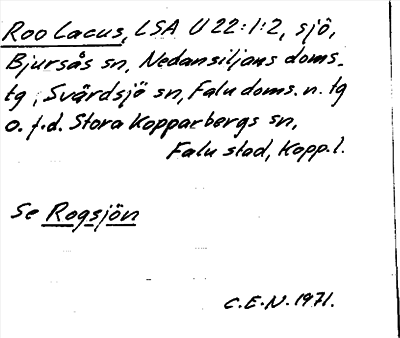 Roo Lacus, LSA U 22:1:2, sjö,
Bjursås sn, Nedansiljans doms.
tg, Svärdsjö sn, Falu doms. n. tg
o. f.d. Stora Kopparbergs sn,
Falu stad, Kopp.l.
Se Rogsjön
C.E.N. 1971.